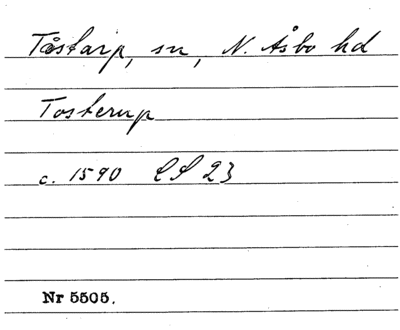 Tåstarp, sn, N. Åsbo hd
Tosterup
c. 1590 LS 23
Nr 5505.